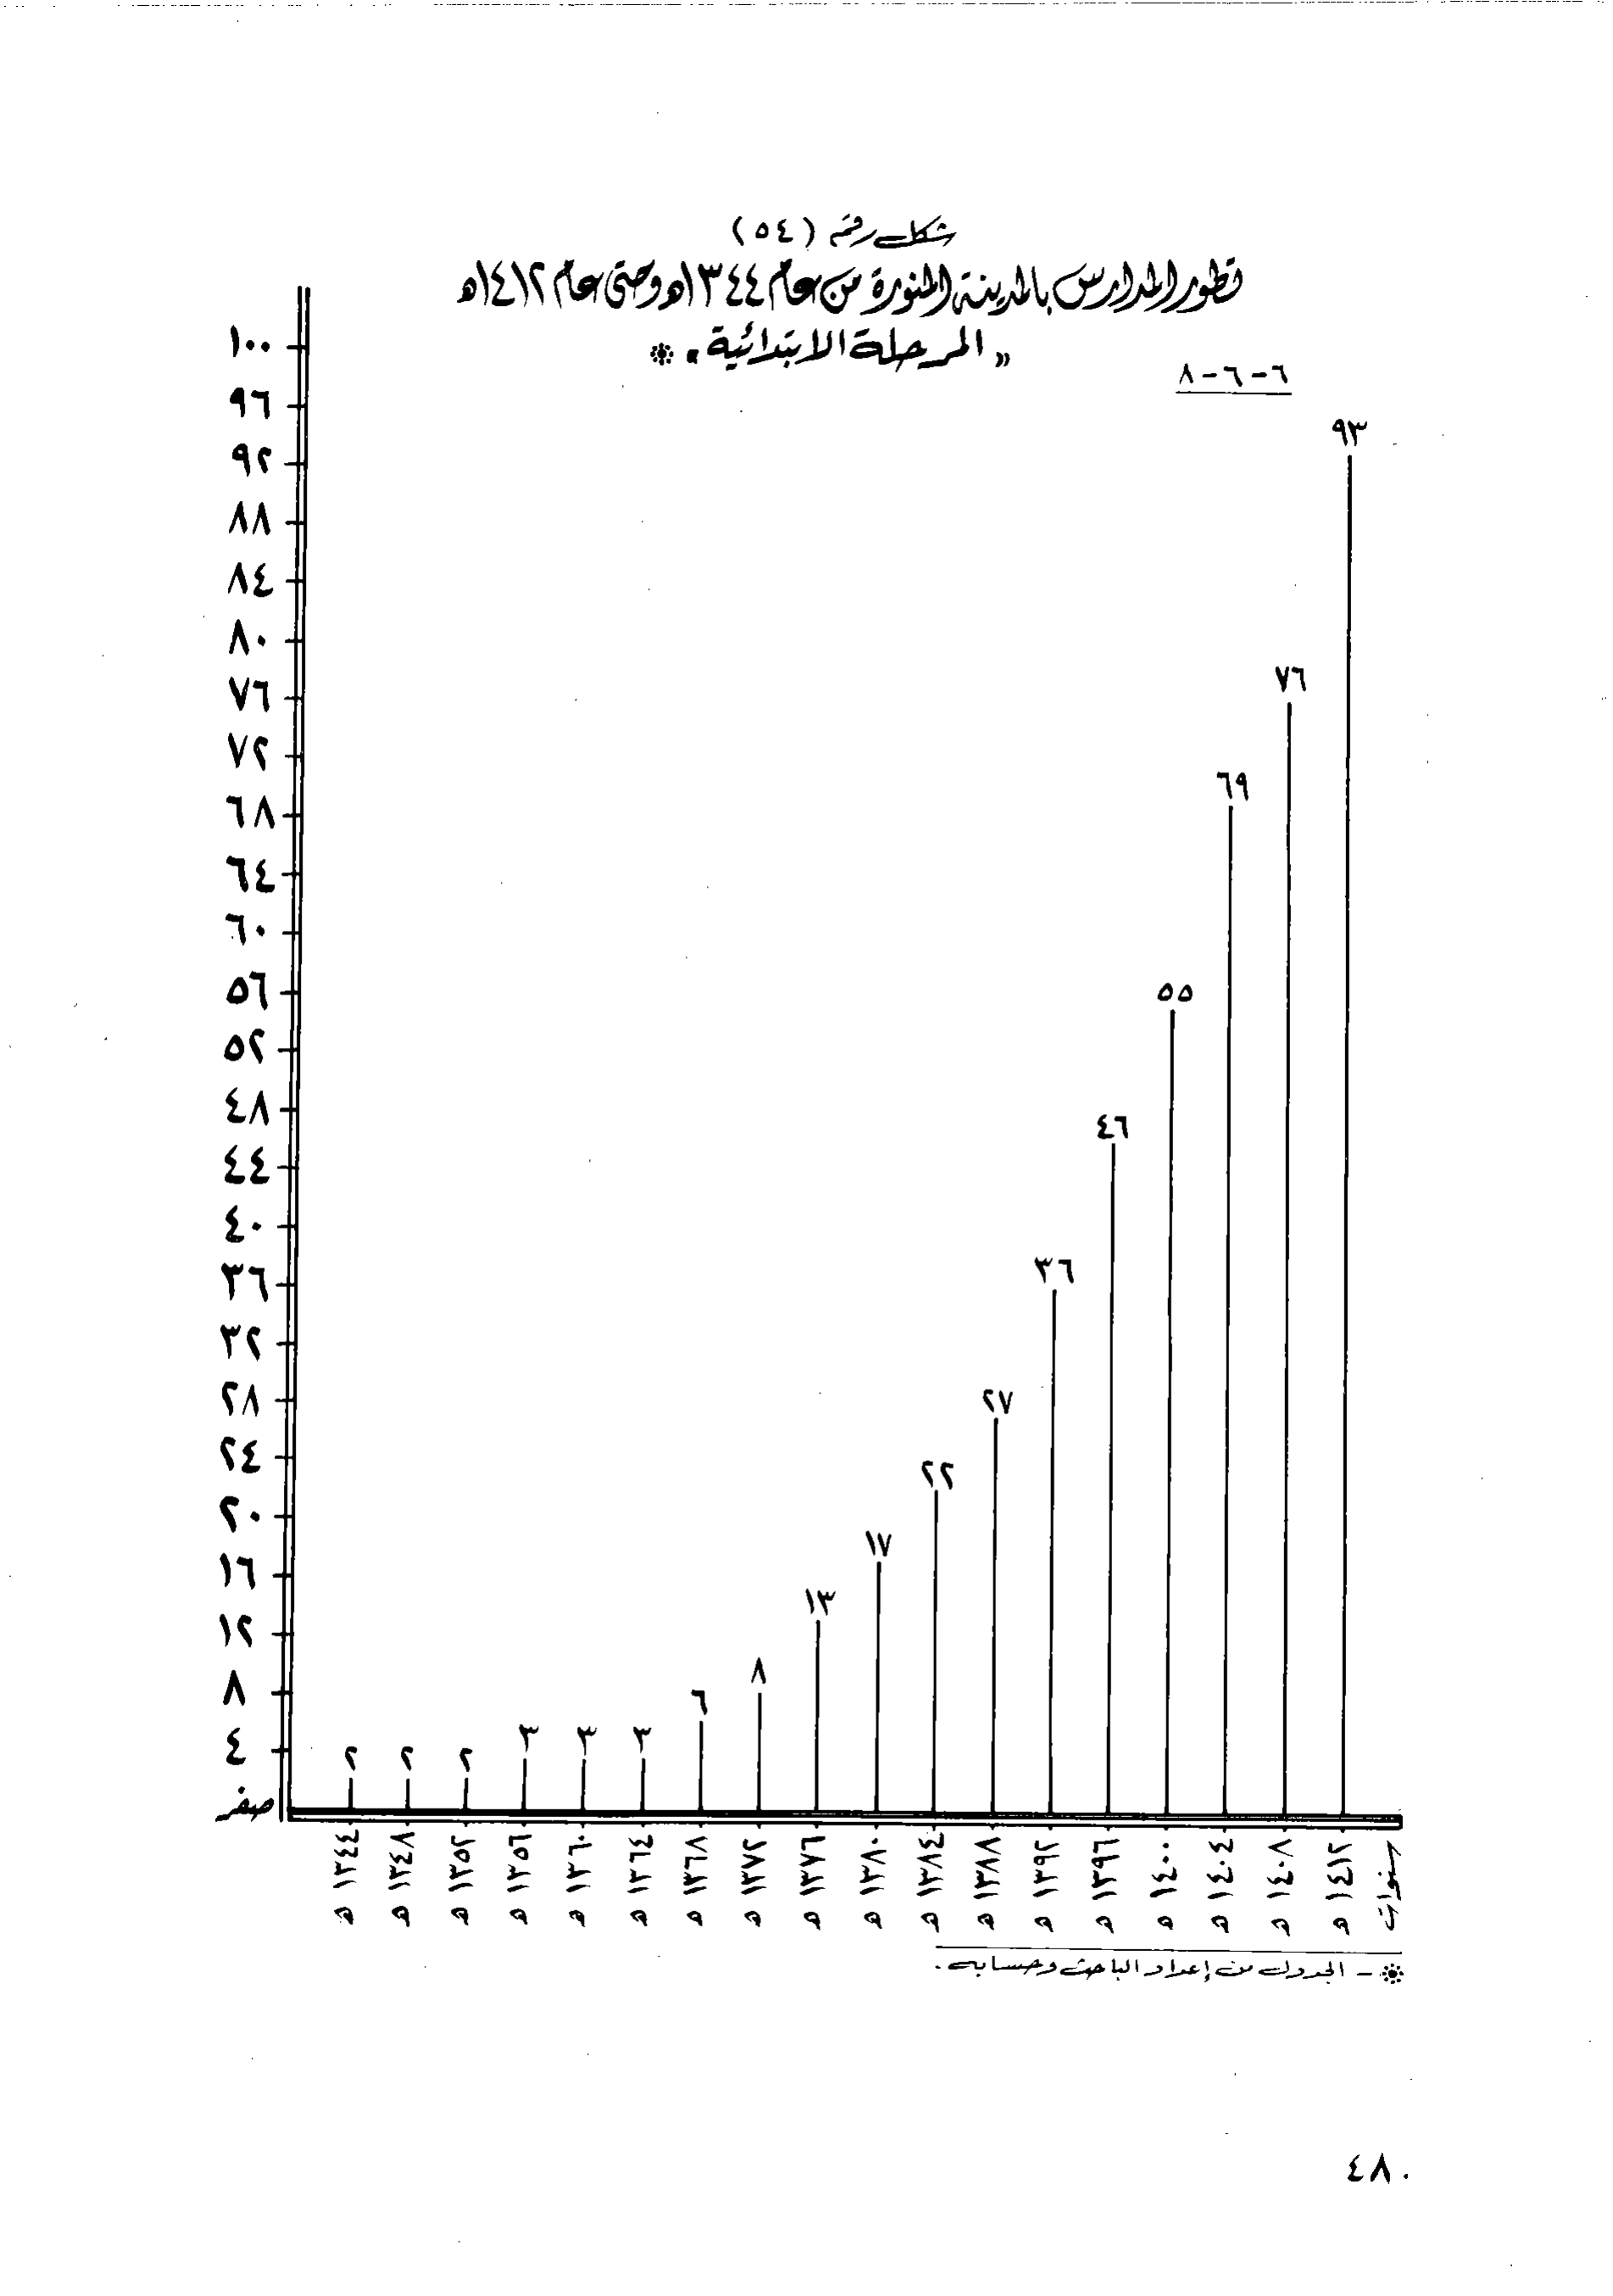 شكل رقم (٥٤)
تطور المدارس بالمدينة المنورة من عام ١٣٤٤هـ وحتى عام ١٤١٢هـ
"المرحلة الابتدائية" *
٦-٦-٨
١٠٠
٩٦
٩٢
٨٨
٨٤
٨٠
٧٦
٧٢
٦٨
٦٤
٦٠
٥٦
٥٢
٤٨
٤٤
٤٠
٣٦
٣٢
٢٨
٢٤
٢٠
١٦
١٢
٨
٤
صفر
٢
٢
٢
٣
٣
٣
٦
٨
١٣
١٧
٢٢
٢٧
٣٦
٤٦
٥٥
٦٩
٧٦
٩٣
١٣٤٤ هـ
١٣٤٨ هـ
١٣٥٢ هـ
١٣٥٦ هـ
١٣٦٠ هـ
١٣٦٤ هـ
١٣٦٨ هـ
١٣٧٢ هـ
١٣٧٦ هـ
١٣٨٠ هـ
١٣٨٤ هـ
١٣٨٨ هـ
١٣٩٢ هـ
١٣٩٦ هـ
١٤٠٠ هـ
١٤٠٤ هـ
١٤٠٨ هـ
١٤١٢ هـ
سنوات
* - الجدول من إعداد الباحث وحسابه .
٤٨٠